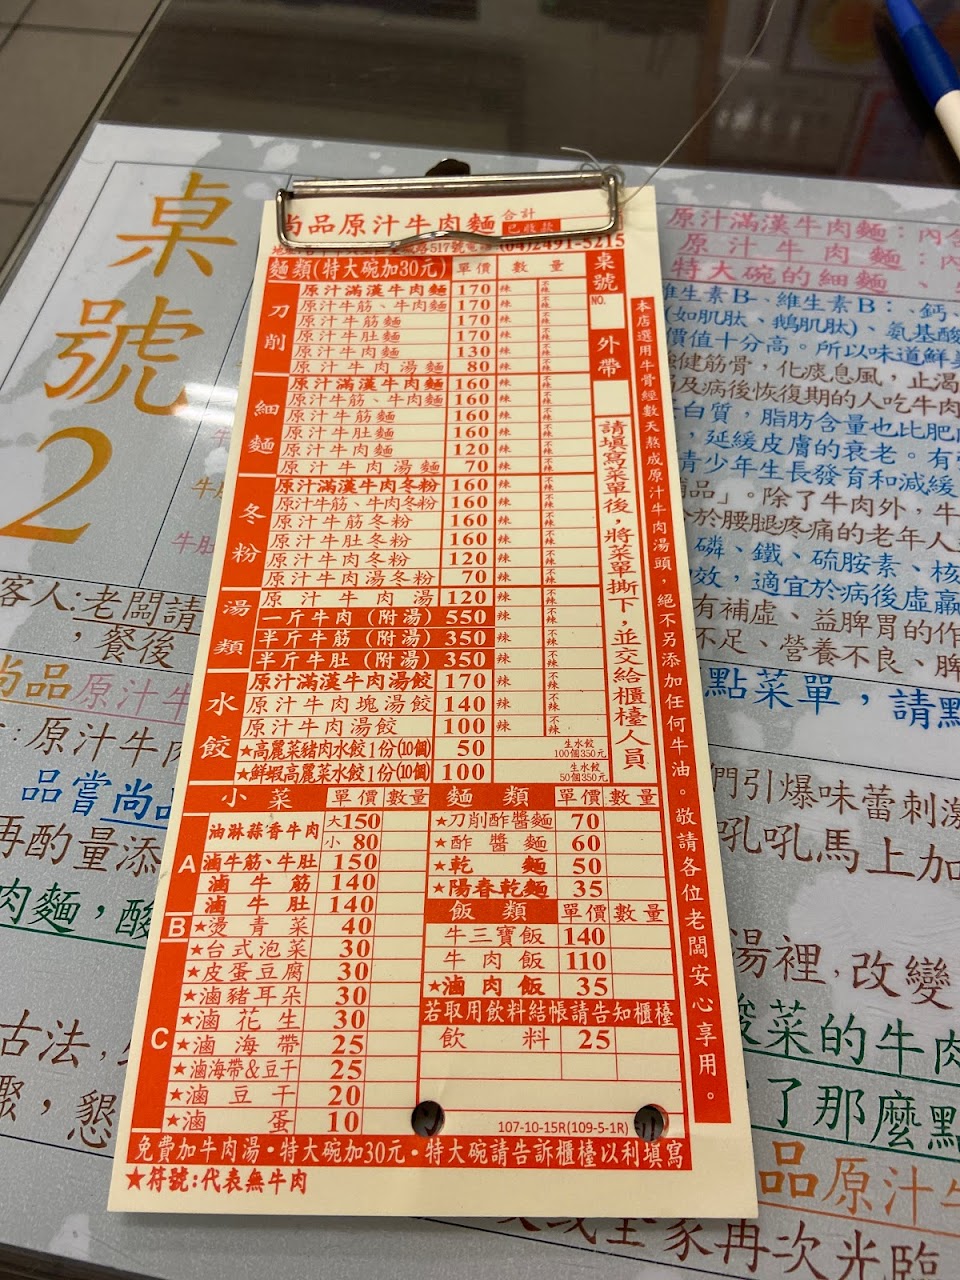 桌號2
尚品原汁牛肉麵 合計
已收款
517號電 (04)2491-5215
麵類(特大碗加30元) 單價 數量
桌號
NO.
外帶
刀削
原汁滿漢牛肉麵 170 辣 不辣
原汁牛筋、牛肉麵 170 辣 不辣
原汁牛筋麵 170 辣 不辣
原汁牛肚麵 170 辣 不辣
原汁牛肉麵 130 辣 不辣
原汁牛肉湯麵 80 辣 不辣
細麵
原汁滿漢牛肉麵 160 辣 不辣
原汁牛筋、牛肉麵 160 辣 不辣
原汁牛筋麵 160 辣 不辣
原汁牛肚麵 160 辣 不辣
原汁牛肉麵 120 辣 不辣
原汁牛肉湯麵 70 辣 不辣
冬粉
原汁滿漢牛肉冬粉 160 辣 不辣
原汁牛筋、牛肉冬粉 160 辣 不辣
原汁牛筋冬粉 160 辣 不辣
原汁牛肚冬粉 160 辣 不辣
原汁牛肉冬粉 120 辣 不辣
原汁牛肉湯冬粉 70 辣 不辣
湯類
原汁牛肉湯 120 辣 不辣
一斤牛肉(附湯) 550 辣 不辣
半斤牛筋(附湯) 350 辣 不辣
半斤牛肚(附湯) 350 辣 不辣
水餃
原汁滿漢牛肉湯餃 170 辣 不辣
原汁牛肉塊湯餃 140 辣 不辣
原汁牛肉湯餃 100 辣 不辣
★高麗菜豬肉水餃1份(10個) 50 生水餃100個350元
★鮮蝦高麗菜水餃1份(10個) 100 生水餃50個350元
請填寫菜單後，將菜單撕下，並交給櫃檯人員
本店選用牛骨經數天熬成原汁牛肉湯頭，絕不另添加任何牛油。敬請各位老闆安心享用。
小菜 單價 數量
A
油淋蒜香牛肉 大150
小80
滷牛筋、牛肚 150
滷牛筋 140
滷牛肚 140
B
★燙青菜 40
C
★台式泡菜 30
★皮蛋豆腐 30
★滷豬耳朵 30
★滷花生 30
★滷海帶 25
★滷海帶&豆干 25
★滷豆干 20
★滷蛋 10
麵類 單價 數量
★刀削酢醬麵 70
★酢醬麵 60
★乾麵 50
★陽春乾麵 35
飯類 單價 數量
牛三寶飯 140
牛肉飯 110
★滷肉飯 35
若取用飲料結帳請告知櫃檯
飲料 25
107-10-15R(109-5-1R)
免費加牛肉湯・特大碗加30元・特大碗請告訴櫃檯以利填寫
★符號:代表無牛肉
客人:老闆請
，餐後
尚品原汁牛
:原汁牛肉
品嘗尚品
再酌量添
肉麵，酸
古法，
驟，懇
原汁滿漢牛肉麵:內含
原汁牛肉麵:內
特大碗的細麵、
維生素B、維生素B：鈣、
(如肌肽、鵝肌肽)、氨基酸
價值十分高。所以味道鮮美
健筋骨，化痰息風，止渴
及病後恢復期的人吃牛肉
白質，脂肪含量也比肥
，延緩皮膚的衰老。有
青少年生長發育和減緩
品」。除了牛肉外，牛
於腰腿疼痛的老年人
磷、鐵、硫胺素、核
效，適宜於病後虛羸
有補虛、益脾胃的作
不足、營養不良、脾
點菜單，請點
們引爆味蕾刺激
吼吼馬上加
湯裡，改變
酸菜的牛肉
了那麼點
品原汁牛
全家再次光臨